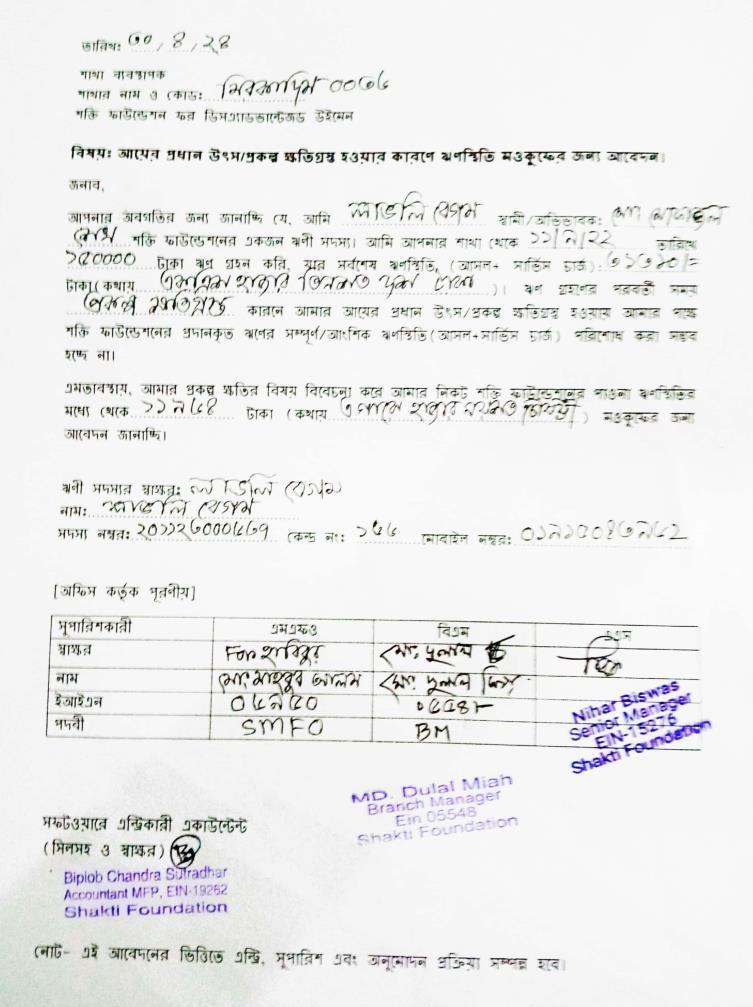 তারিখ: ৩০/৪/২৪
শাখা ব্যবস্থাপক
শাখার নাম ও কোড: মিরকাদিম ০০৭৬
শক্তি ফাউন্ডেশন ফর ডিসএ্যাডভান্টেজড উইমেন
বিষয়: আয়ের প্রধান উৎস/প্রকল্প ক্ষতিগ্রস্থ হওয়ার কারণে ঋণস্থিতি মওকুফের জন্য আবেদন।
জনাব,
আপনার অবগতির জন্য জানাচ্ছি যে, আমি লাভলি বেগম স্বামী/অভিভাবক: মো
শক্তি ফাউন্ডেশনের একজন ঋণী সদস্য। আমি আপনার শাখা থেকে ১১/৯/২২ তারিখে
১৫০০০০ টাকা ঋণ গ্রহন করি, যার সর্বশেষ ঋণস্থিতি, (আসল+ সার্ভিস চার্জ):
টাকা(কথায় হাজার তিনশত টাকা )। ঋণ গ্রহণের পরবর্তী সময়
প্রকল্প ক্ষতিগ্রস্ত কারনে আমার আয়ের প্রধান উৎস/প্রকল্প ক্ষতিগ্রস্থ হওয়ায় আমার পক্ষে
শক্তি ফাউন্ডেশনের প্রদানকৃত ঋণের সম্পূর্ণ/আংশিক ঋণস্থিতি(আসল+সার্ভিস চার্জ) পরিশোধ করা সম্ভব
হচ্ছে না।
এমতাবস্থায়, আমার প্রকল্প ক্ষতির বিষয় বিবেচনা করে আমার নিকট শক্তি ফাউন্ডেশনের পাওনা ঋণস্থিতির
মধ্যে থেকে টাকা (কথায় হাজার নয়শত ) মওকুফের জন্য
আবেদন জানাচ্ছি।
ঋণী সদস্যর স্বাক্ষর: লাভলি বেগম
নাম: লাভলি বেগম
সদস্য নম্বর: কেন্দ্র নং: ১৫৬ মোবাইল নম্বর:
[অফিস কর্তৃক পূরণীয়]
সুপারিশকারী এমএফও বিএম এএম
স্বাক্ষর For হাবিবুর মো: দুলাল
নাম মোঃ মাহবুব আলম মো: দুলাল মিয়া
ইআইএন ০৫৯৫০ ০৫৫৪৮
পদবী SMFO BM
Nihar Biswas
Senior Manager
EIN-15276
Shakti Foundation
MD. Dulal Miah
Branch Manager
Ein 05548
Shakti Foundation
সফটওয়ারে এন্ট্রিকারী একাউন্টেন্ট
(সিলসহ ও স্বাক্ষর)
Biplob Chandra Sutradhar
Accountant MFP, EIN-19262
Shakti Foundation
নোট- এই আবেদনের ভিত্তিতে এন্ট্রি, সুপারিশ এবং অনুমোদন প্রক্রিয়া সম্পন্ন হবে।